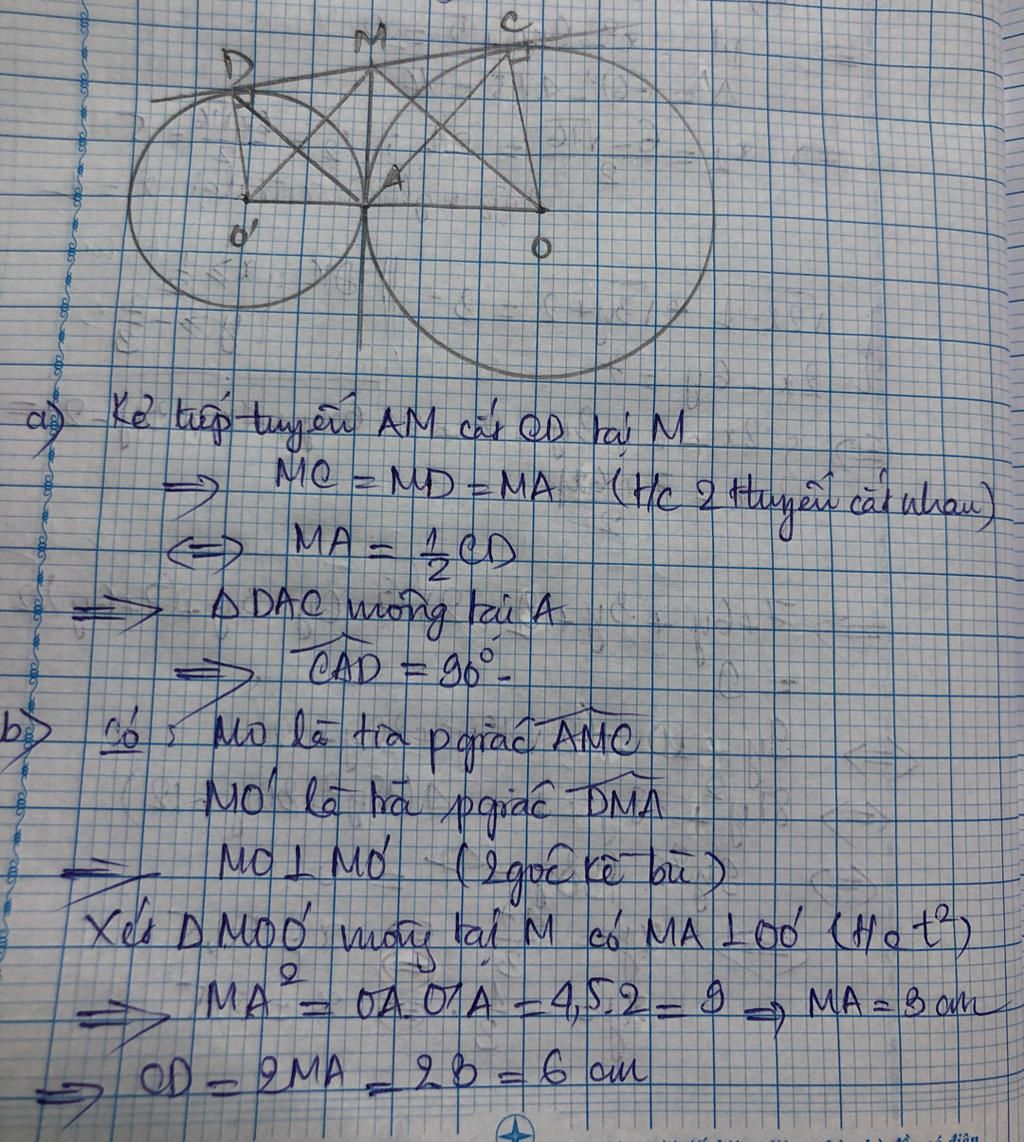 D M C
A
O' O
a) Kẻ tiếp tuyến AM cắt CD tại M
⇒ MC = MD = MA (t/c 2 ttuyến cắt nhau)
⇔ MA = 1/2 CD
⇒ Δ DAC vuông tại A
⇒ CAD = 90°
b) Có : MO là tia pgiác AMC
MO' là tia pgiác DMA
⇒ MO ⊥ MO' (2 góc kề bù)
Xét Δ MOO' vuông tại M có MA ⊥ OO' (t/c t²)
⇒ MA² = OA.O'A = 4,5.2 = 9 ⇒ MA = 3 cm
⇒ CD = 2MA = 2.3 = 6 cm